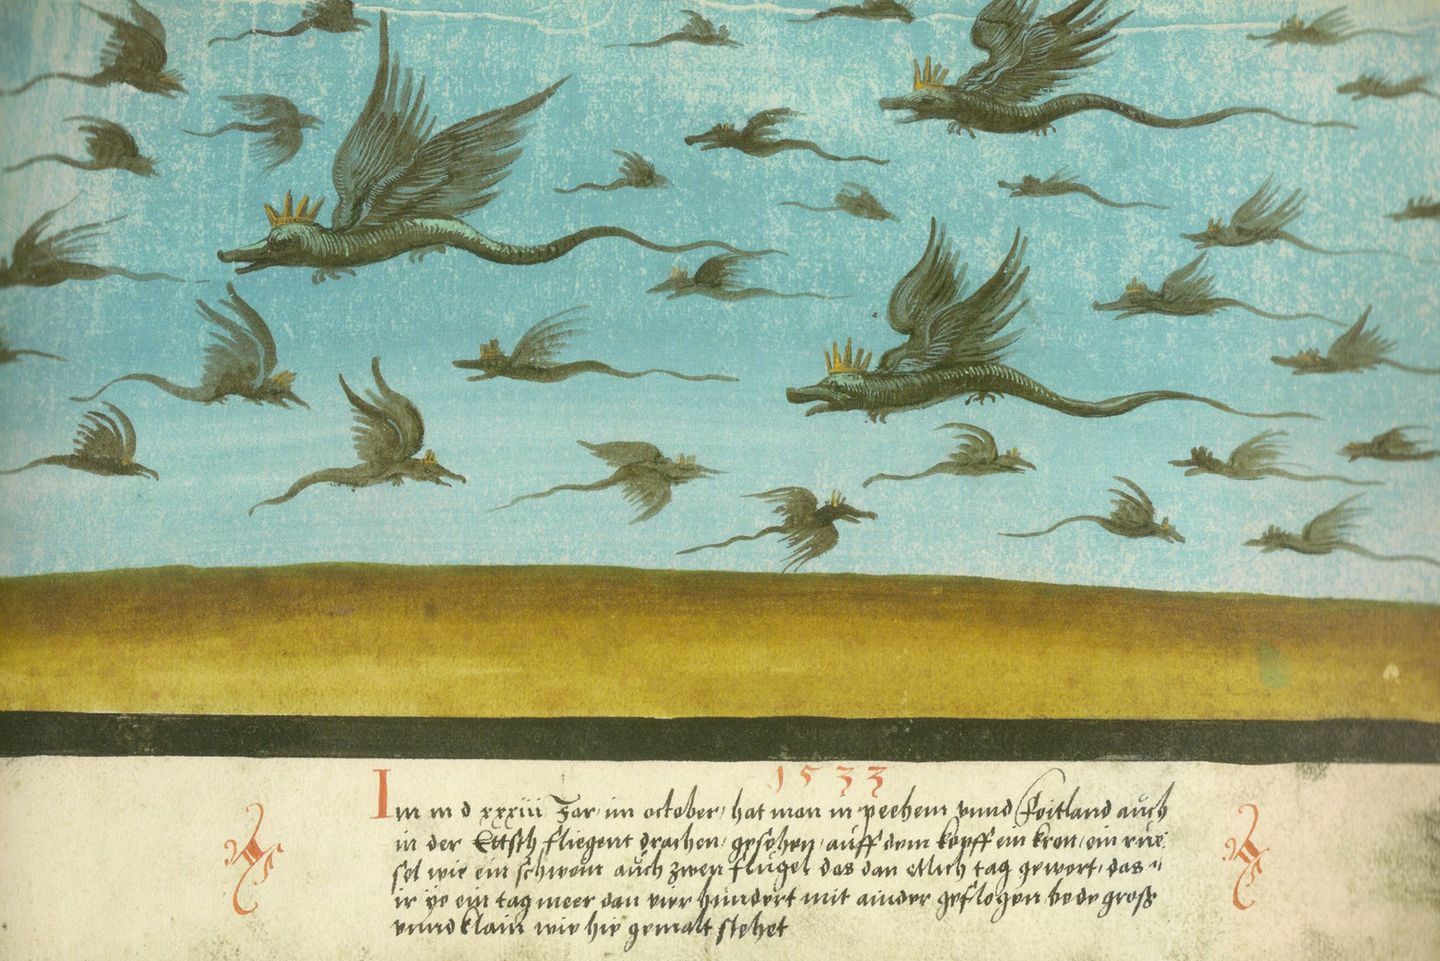 1533
Im m d xxxiii Jar, im october, hat man in peehem vnnd Voitland auch
in der Ettsch fliegent drachen, gesehen, auff dem kopff ein kron, ein rüe¬
sel wie ein schwein auch zwen flugel das dan etlich tag gewert, das
ir ye ein tag meer dan vier hundert mit ainder geflogen bede groß
vnnd klain wie hie gemalt stehet